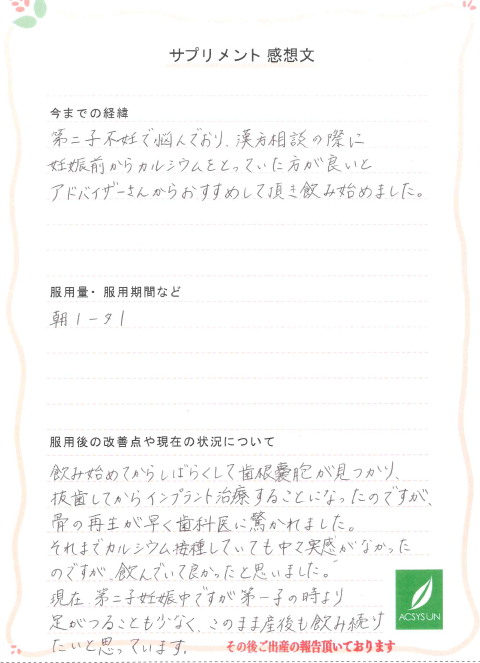 サプリメント 感想文
今までの経緯
第二子不妊で悩んでおり、漢方相談の際に
妊娠前からカルシウムをとっていた方が良いと
アドバイザーさんからおすすめして頂き飲み始めました。
服用量・服用期間など
朝1-夕1
服用後の改善点や現在の状況について
飲み始めてからしばらくして歯根嚢胞が見つかり、
抜歯してからインプラント治療することになったのですが、
骨の再生が早く歯科医に驚かれました。
それまでカルシウム接種していても中々実感がなかった
のですが、飲んでいて良かったと思いました。
現在、第二子妊娠中ですが第一子の時より
足がつることも少なく、このまま産後も飲み続け
たいと思っています。
その後ご出産の報告頂いております
ACSYSUN